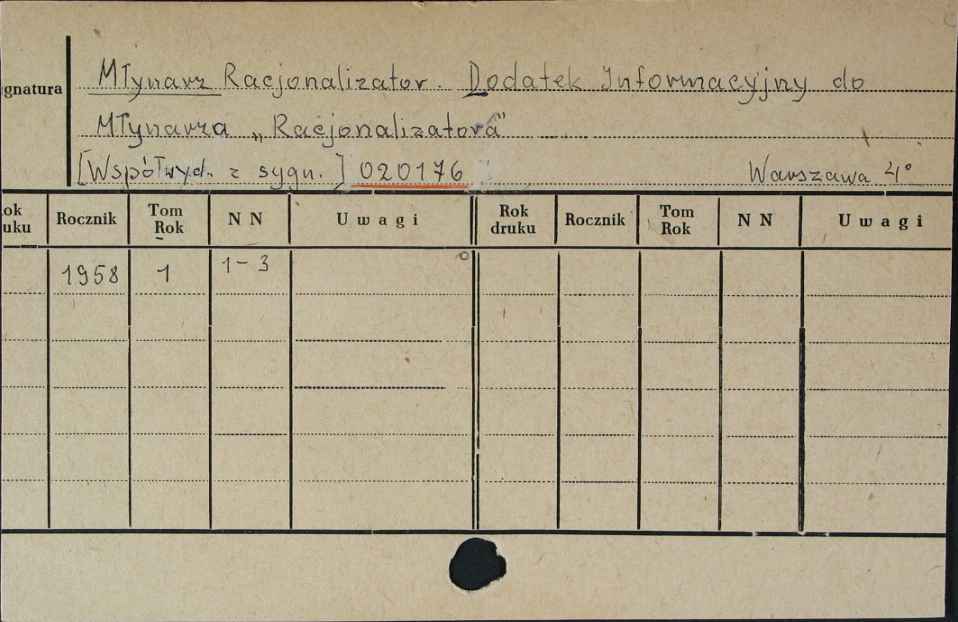 Młynarz Racjonalizator. Dodatek Informacyjny do
gnatura
Młynarza „Racjonalizatora"
[Współwyd. z sygn.] 020176 Warszawa 4°
ok uku Rocznik Tom Rok N N Uwagi Rok druku Rocznik Tom Rok N N Uwagi
1958 1 1-3